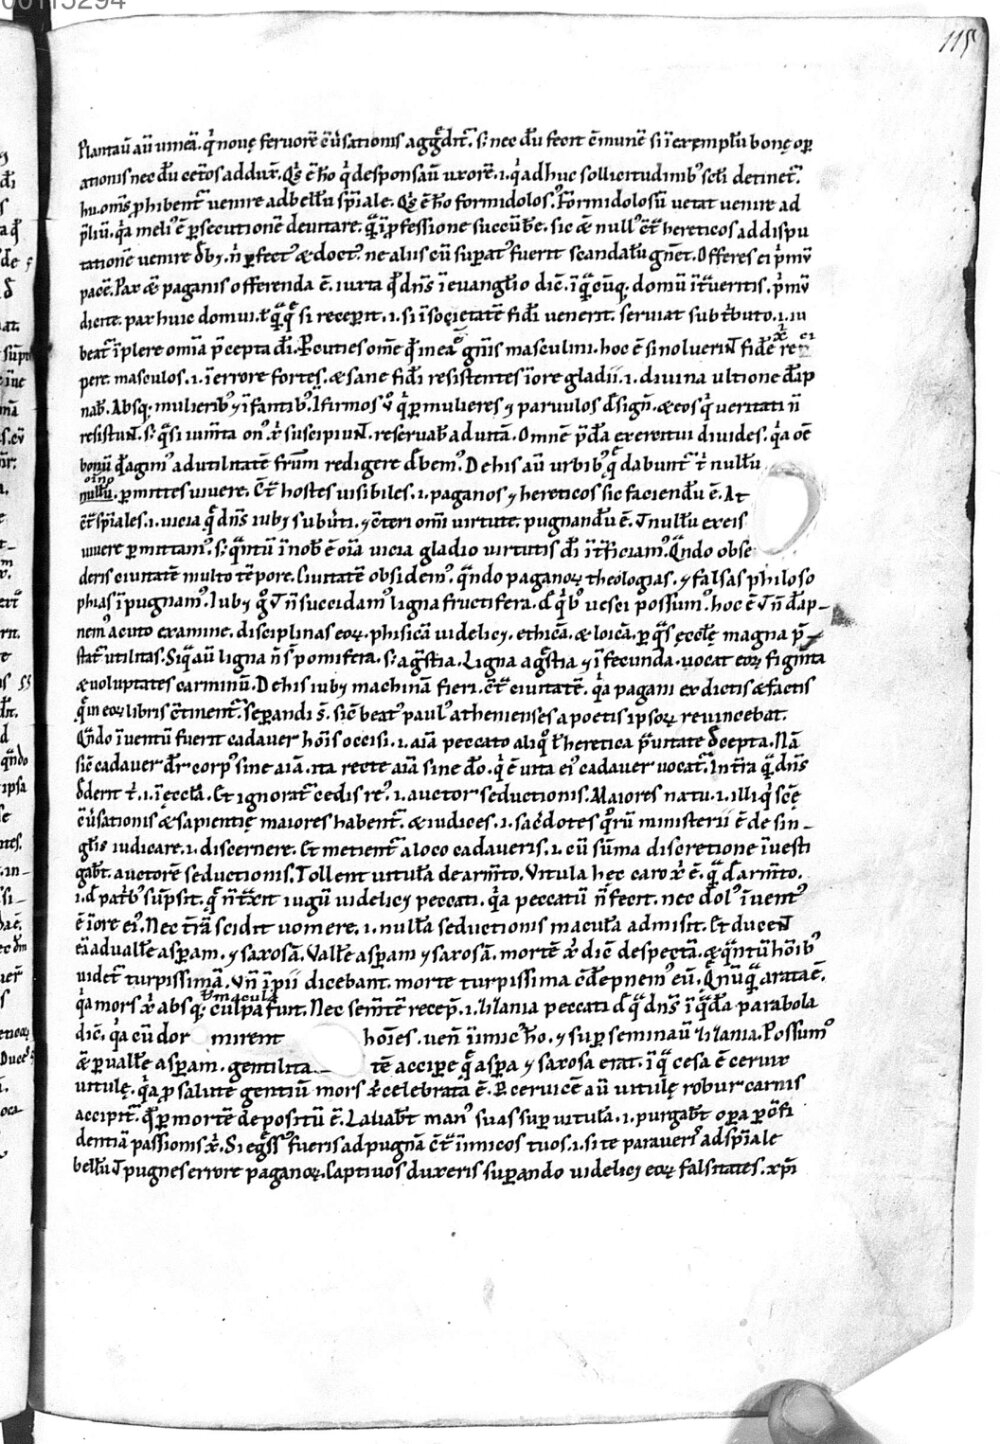 00115294
115
Plantaū aū uineā. qͥ nouę feruorē cūsationis aggᵈit̄. s; nec dū fecit cōmunē si ī exemplū bonę op̄
ationis nec dū cet̄os adduxͭ. Qͥs ē hō qͥ desponsaū uxorē. i. qͥ adhuc sollicitudinibꝰ scłi detinet̄.
hi. om̄s ꝓhibent̄ uenire ad bellū sp̄iale. Qͥs ē hō formidolosꝰ. Formidolosū uetat uenire ad
p̄liū. qͥa meliꝰ ē ꝑsecutionē deuitare. quā ī ꝓfessione succūbe. sic & nullꝰ cͣ hereticos ad dispu
tationē uenire dby. n̄ ꝑfectꝰ & doctꝰ. ne aliis cū suꝑatꝰ fuerit scandalū gn̄et. Offeres ei p̄mū
pacē. Pax & paganis offerenda ē. iuxta qd̄ dn̄s ī euangłio diē. ī qͣ cūq; domū īt̄ueritis. p̄mū
dicite. pax huic domui. ł qͣ qͣ si receꝑit. i. si ī societatē fidi uenerit. seruiat sub t̄buto. i. iu
beat̄ īplere omīa p̄cepta dī. Pcuties om̄e qd̄ in ea gn̄is masculini. hoc ē si noluerint fidē xͥ reci
pere. masculos. i. ī errore fortes. & sane fidi resistentes ī ore gladii. i. diuina ultione dāp
nab̄. Absq; mulieribꝰ ⁊ īfantibꝰ. Īfirmos ū qͥ ꝑ mulieres ⁊ paruulos dsign̄. & eos qͥ ueritati n̄
resistunt. s; qͣsi iumīta onꝰ xͥ suscipiunt. reseruab̄ ad uitā. Omnē p̄dā exercitui diuides. qͥa oē
bonū qd̄ agimꝰ ad utilitatē fr̄um redigere dbemꝰ. De his aū urbibꝰ qͤ dabunt̄ tͥ nullū
om̄ino
nullū. ꝑmittes uiuere. Cͣ hostes uisibiles. i. paganos ⁊ hereticos sic faciendū ē. At
cͣ sp̄iales. i. uicia qͤ dn̄s iuby subuͭti. ⁊ cͣ teri omī uirtute. pugnandū ē. ⁊ nullū ex eis
uiuere ꝑmittamꝰ. s; qͣntū ī nob̄ ē oīa uicia gladio uirtutis dī īt̄ficiamꝰ. Qn̄do obse
deris ciuitatē multo tēpore. Ciuitatē obsidemꝰ. qn̄do paganoꝝ theologias. ⁊ falsas philoso
phias īpugnamꝰ. Iuby gͦ ⁊ n̄ succidamꝰ ligna fructifera. d qͥbꝰ uesci possumꝰ. hoc ē ⁊ n̄ dāp-
nemꝰ acuto examine. disciplinas eoꝝ. phisicā uidelicy. ethicā. & loicā. ꝑ qͣs ęcclę magna p̄
stat̄ utilitas. Siqͣ aū ligna n̄ s̄ pomifera. s; agͤstia. Ligna agͤstia ⁊ īfecunda. uocat eoꝝ figmīta
& uoluptates carminū. De his iuby machinā fieri. cͣ ciuitatē. qͥa pagani ex dictis & factis
qͤ in eoꝝ libris cōtinent̄. seꝑandi s̄. sic beatꝰ paulꝰ athenienses a poetis ipsoꝝ reuincebat.
Qn̄do īuentū fuerit cadauer hōis occisi. i. aīa peccato aliqͦ ł heretica p̄uitate dcepta. Nā
sic cadauer dr̄ corpꝰ sine aīa. ita recte aīa sine dō. qͥ ē uita eiꝰ cadauer uocat̄. In tr̄a qͣ dn̄s
dderit tͥ. i. ī ecclā. Et ignorat̄ cedis reꝰ. i. auctor seductionis. Maiores natu. i. illi qͥ scē
cūsationis & sapientię maiores habent̄. & iudices. i. sacͤdotes qͦrū ministerii ē de sin-
głis iudicare. i. discernere. Et metient̄ a loco cadaueris. i. cū sūma discretione īuesti
gab̄t. auctorē seductionis. Tollent uitulā de arm̄to. Vitula hec caro xͥ ē. qͣ d arm̄to.
i. d patͥbꝰ sūpsit. qͣ n̄ tͣxit iugū uidelicy peccati. qͥa peccatū n̄ fecit. nec dolꝰ īuentꝰ
ē ī ore eiꝰ. Nec tr̄ā scidit uomere. i. nullā seductionis maculā admisit. Et ducent
eā ad uallē asꝑam. ⁊ saxosā. Vallē asꝑam ⁊ saxosā. mortē xͥ diē despectā. & qͣntū hōibꝰ
uidet̄ turpissimā. Vn̄ īpii dicebant. morte turpissima cōdēpnemꝰ eū. Qͤ nūqͣ arata ē.
qͥa mors xͥ absq; culpa fuit. Nec sem̄tē recep̄. i. lilania peccati d qͣ dn̄s ī qͣdā parabola
diē. qͥa cū dor mirent hōies. uen̄ īimicꝰ hō. ⁊ suꝑseminaū lilania. Possumꝰ
& ꝑ uallē asꝑam. gentilita- tē accipe qͤ asꝑa ⁊ saxosa erat. ī qͣ cesa ē ceruix
uitulę. qͥa ꝓ salute gentiū mors xͥ celebrata ē. Ꝑ ceruicē aū uitulę robur carnis
accipit̄. qd̄ ꝑ mortē depositū ē. Lauab̄t manꝰ suas suꝑ uitulā. i. purgab̄t oꝑa ꝑ ꝯfi
dentiā passionis xͥ. Si egͤssꝰ fueris ad pugnā cͣ īimicos tuos. i. si te parauerꝭ ad sp̄iale
bellū ⁊ pugnes errore paganoꝝ. Captiuos duxeris suꝑando uidelicy eoꝝ falsitates. xp̄i